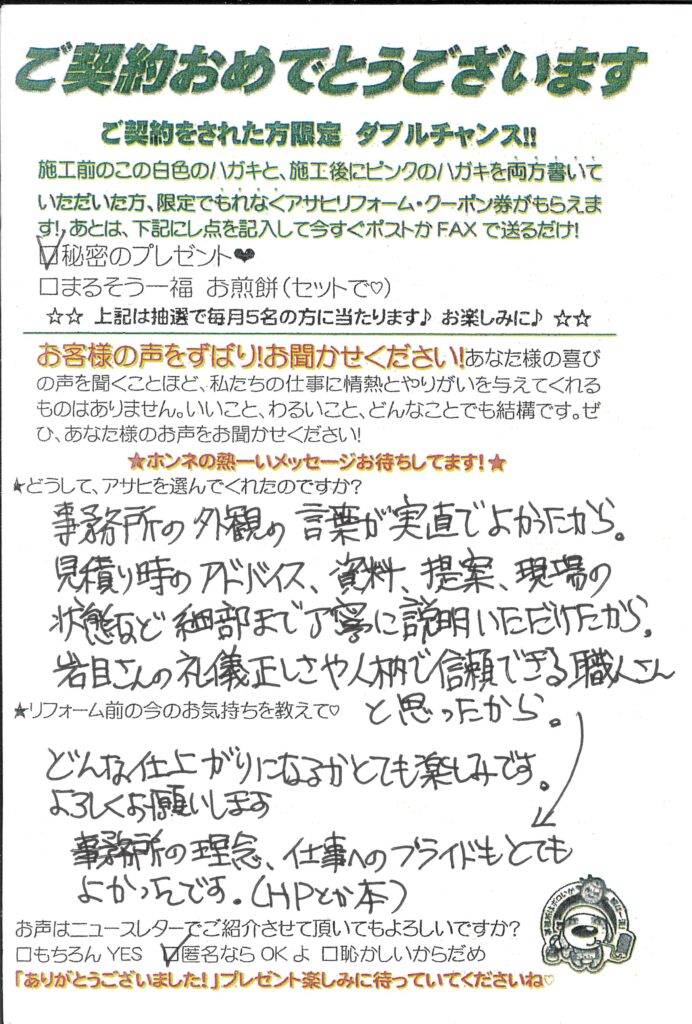 ご契約おめでとうございます
ご契約をされた方限定 ダブルチャンス!!
施工前のこの白色のハガキと、施工後にピンクのハガキを両方書いて
いただいた方、限定でもれなくアサヒリフォーム・クーポン券がもらえま
す!あとは、下記にレ点を記入して今すぐポストか FAX で送るだけ!
☑秘密のプレゼント♥
□まるそう一福 お煎餅(セットで♡)
☆☆ 上記は抽選で毎月5名の方に当たります♪ お楽しみに♪ ☆☆
お客様の声をずばり!お聞かせください!あなた様の喜び
の声を聞くことほど、私たちの仕事に情熱とやりがいを与えてくれる
ものはありません。いいこと、わるいこと、どんなことでも結構です。ぜ
ひ、あなた様のお声をお聞かせください!
★ホンネの熱ーいメッセージお待ちしてます!★
★どうして、アサヒを選んでくれたのですか?
事務所の外観の言葉が実直でよかったから。
見積り時のアドバイス、資料、提案、現場の
状態など細部まで丁寧に説明いただけたから。
岩目さんの礼儀正しさや人柄で信頼できる職人さん
と思ったから。
★リフォーム前の今のお気持ちを教えて♡
どんな仕上がりになるかとても楽しみです。
よろしくお願いします
事務所の理念、仕事へのプライドもとても
よかったです。(HPとか本)
お声はニュースレターでご紹介させて頂いてもよろしいですか?
□もちろん YES ☑匿名なら OK よ □恥かしいからだめ
「ありがとうございました!」プレゼント楽しみに待っていてくださいね♡